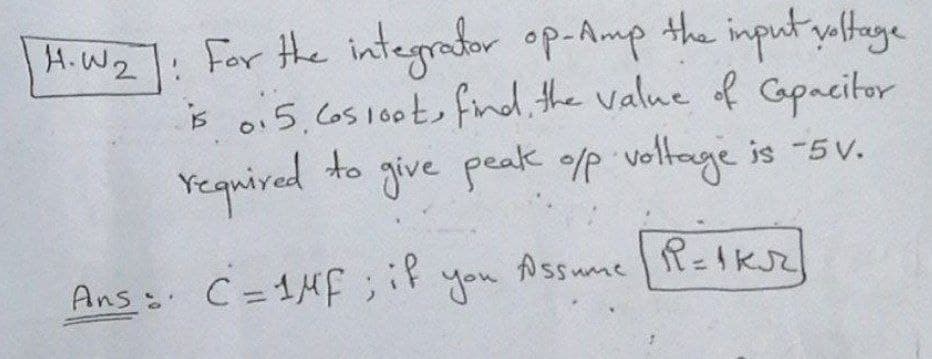 H.W2 : For the integrator op-Amp the input voltage
is 0.5. Cos 100t, find, the value of Capacitor
required to give peak o/p voltage is -5 V.
Ans :. C = 1 μF ; if you Assume R = 1 KΩ